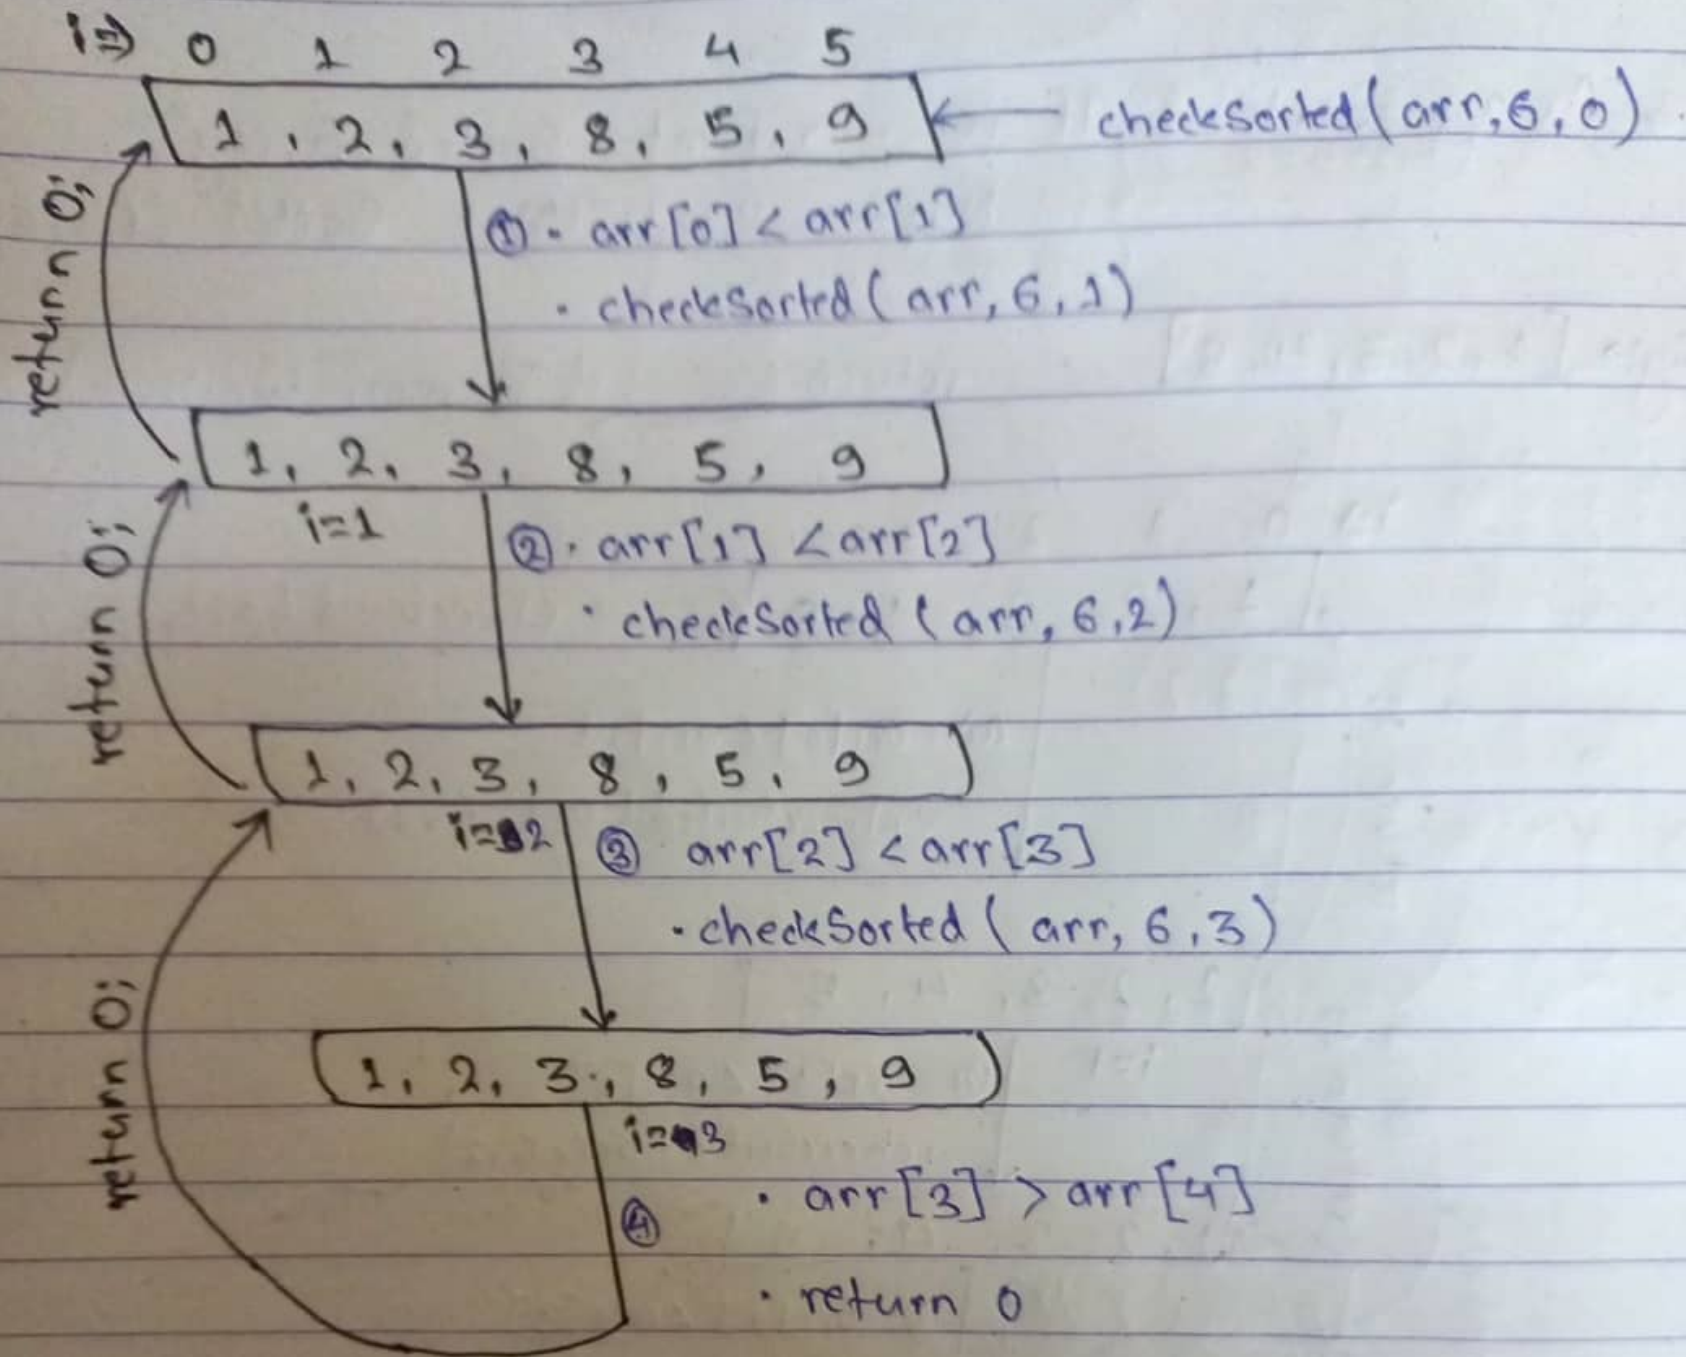 i⇒ 0 1 2 3 4 5
1, 2, 3, 8, 5, 9 ← checkSorted(arr,6,0)
return 0;
① · arr[0] < arr[1]
· checkSorted(arr, 6, 1)
1, 2, 3, 8, 5, 9
i=1
return 0;
② · arr[1] < arr[2]
· checkSorted(arr, 6, 2)
1, 2, 3, 8, 5, 9
i=2
③ arr[2] < arr[3]
· checkSorted(arr, 6, 3)
return 0;
1, 2, 3, 8, 5, 9
i=3
④ · arr[3] > arr[4]
· return 0